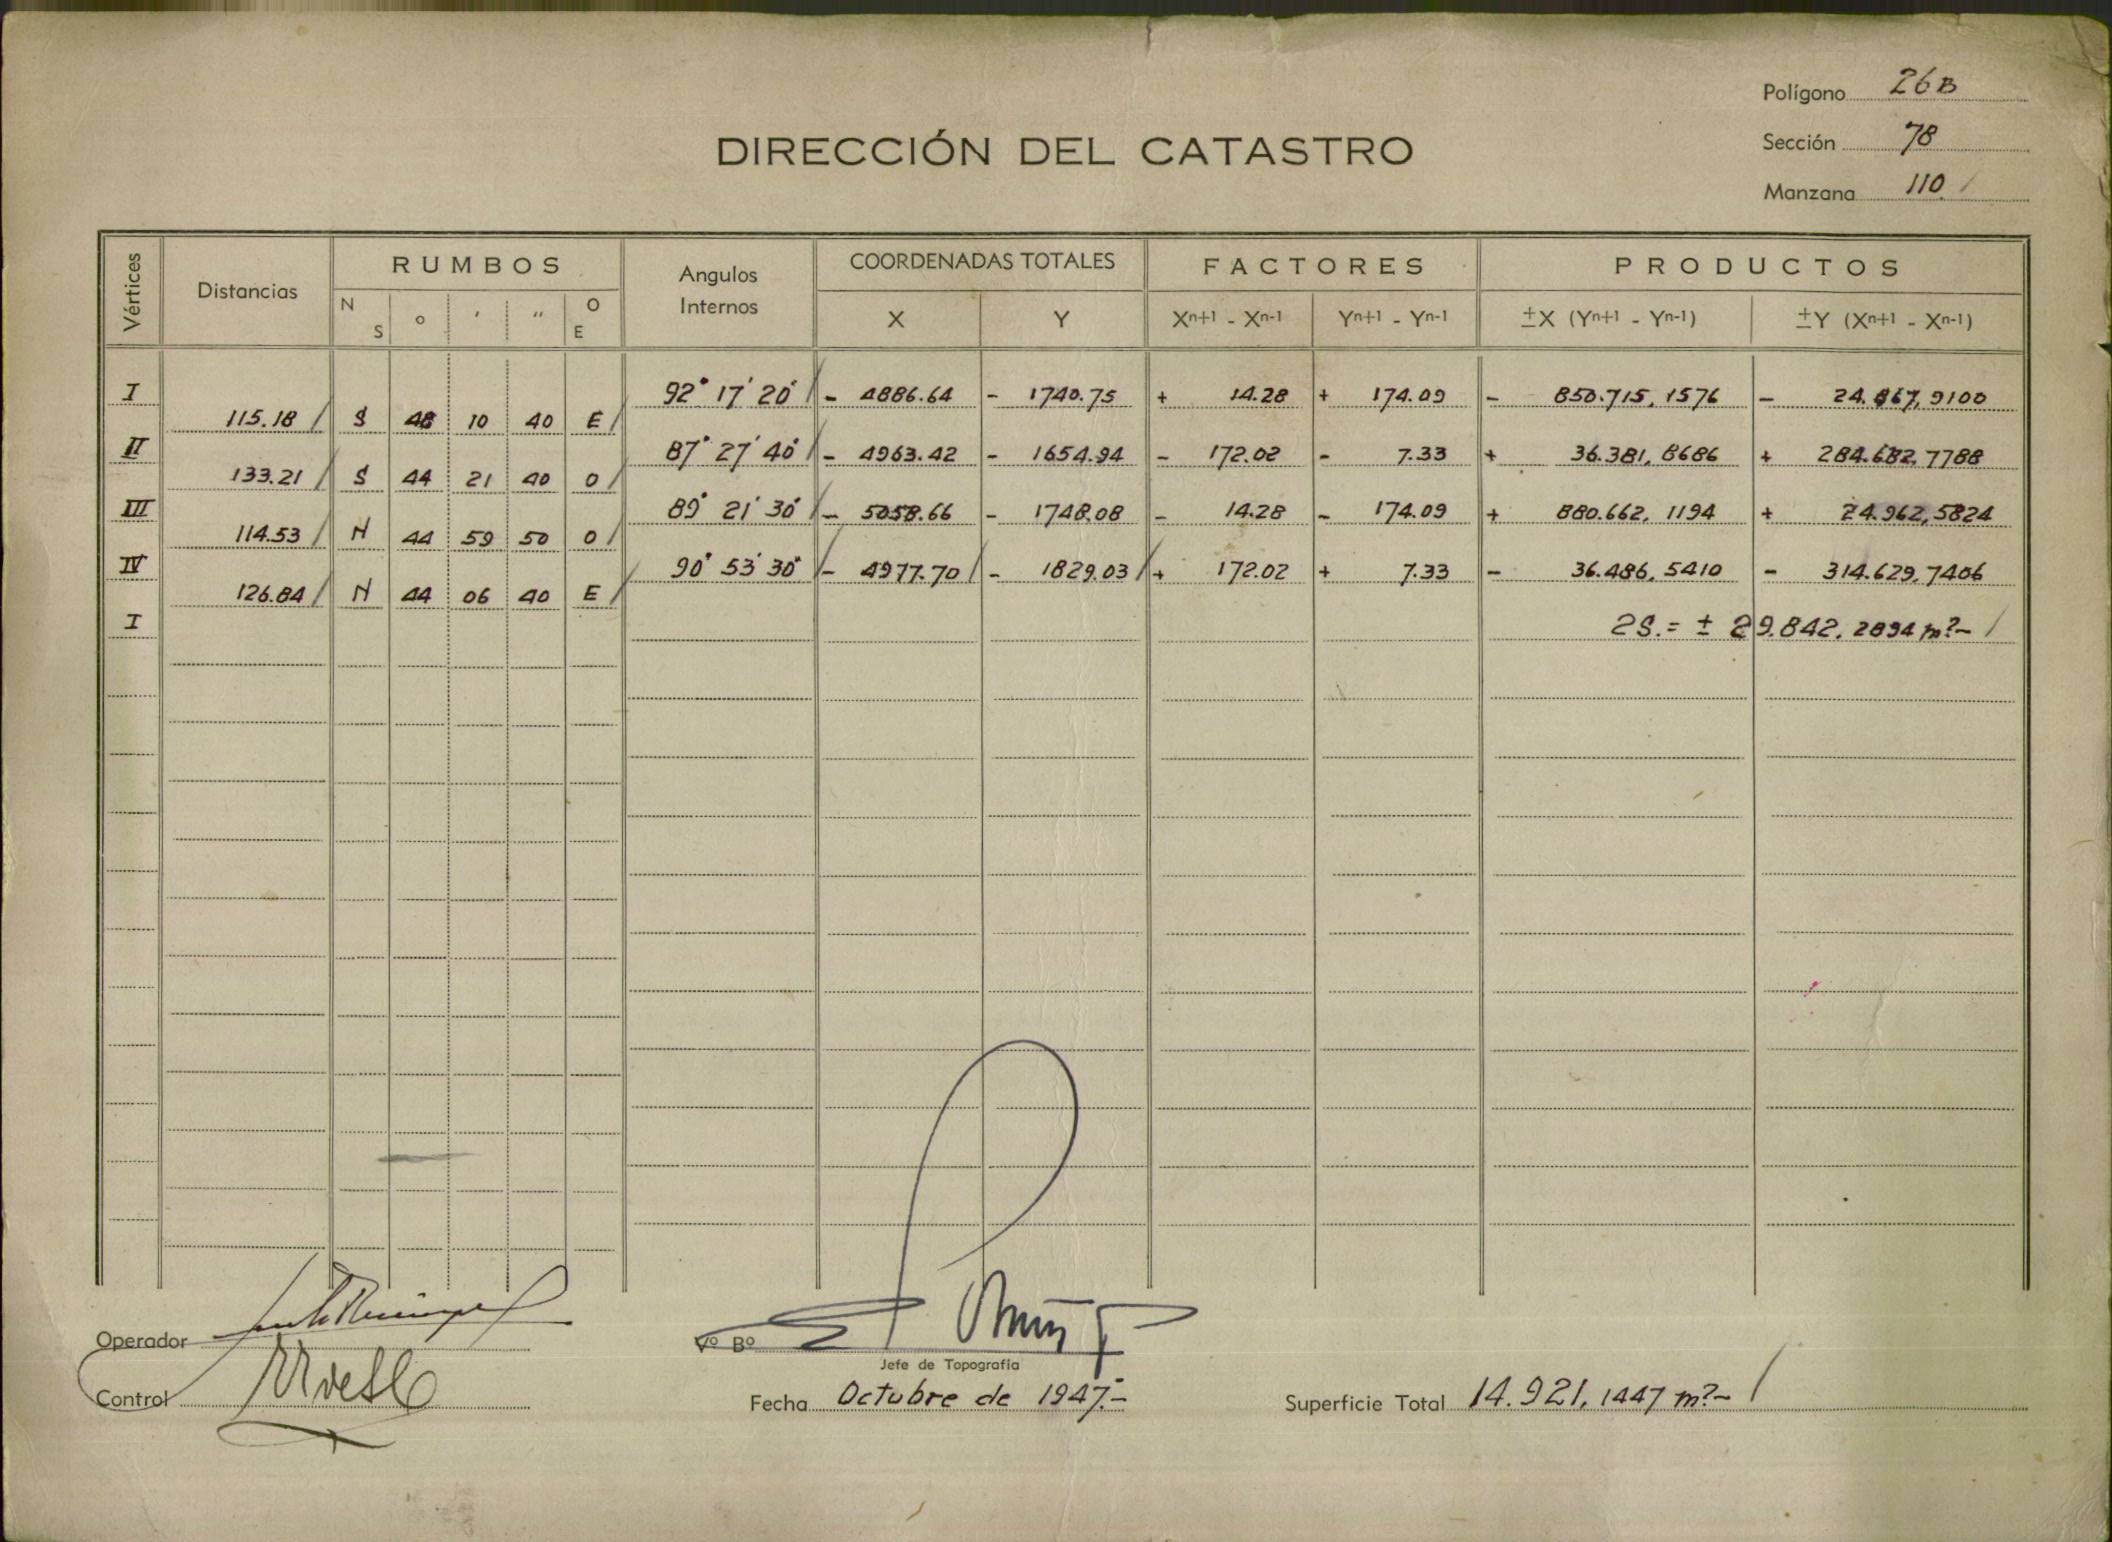 Polígono 26B
Sección 78
Manzana 110
DIRECCIÓN DEL CATASTRO
Vértices Distancias RUMBOS Angulos Internos COORDENADAS TOTALES FACTORES PRODUCTOS
N S ° ' " O E X Y Xn+1 - Xn-1 Yn+1 - Yn-1 ±X (Yn+1 - Yn-1) ±Y (Xn+1 - Xn-1)
I 92° 17' 20" - 4886.64 - 1740.75 + 14.28 + 174.09 - 850.715,1576 - 24.857,9100
115.18 S 48 10 40 E
II 87° 27' 40" - 4963.42 - 1654.94 - 172.02 - 7.33 + 36.381,8686 + 284.682,7788
133.21 S 44 21 40 O
III 89° 21' 30" - 5058.66 - 1748.08 - 14.28 - 174.09 + 880.662,1194 + 24.962,5824
114.53 N 44 59 50 O
IV 90° 53' 30" - 4977.70 - 1829.03 + 172.02 + 7.33 - 36.486,5410 - 314.629,7406
126.84 N 44 06 40 E
I 2S.= ± 29.842,2894 m².-
Operador
Vº Bº
Jefe de Topografía
Control
Fecha Octubre de 1947.-
Superficie Total 14.921,1447 m².-